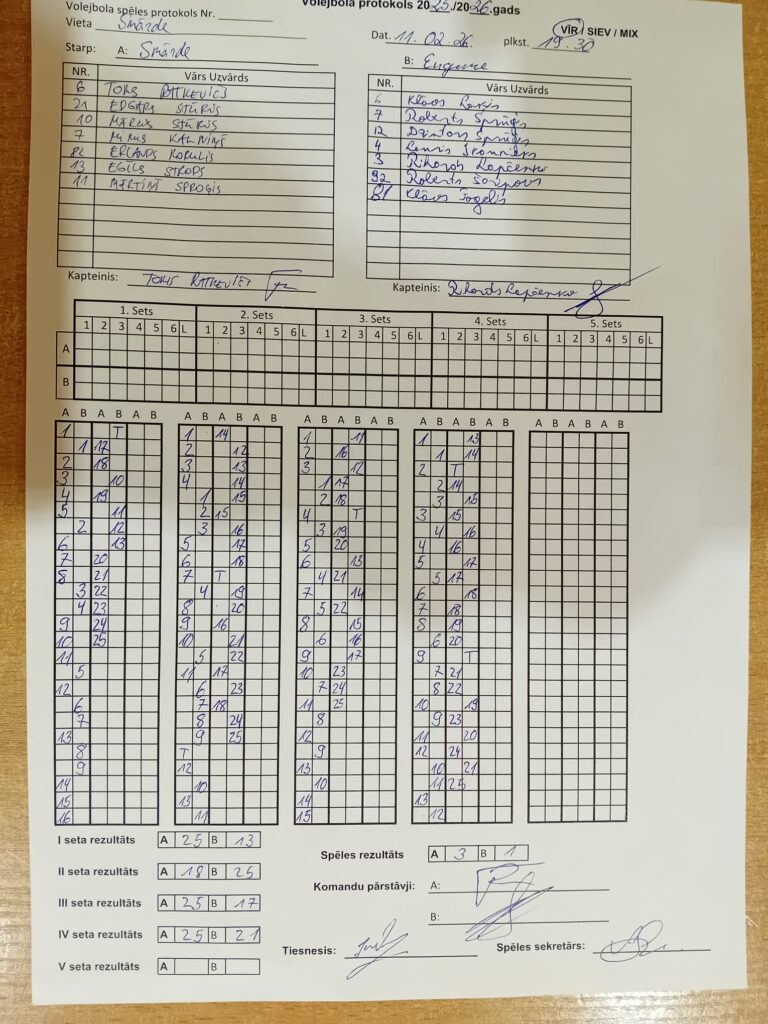 Volejbola spēles protokols Nr.
Volejbola protokols 2025./2026.gads
Vieta Smārde
Dat. 11.02.26. plkst. 19.30 VĪR / SIEV / MIX
Starp: A: Smārde B: Engure
NR. Vārs Uzvārds
6 TOMS RATKEVIČS
21 EDGARS STŪRUS
10 MĀRCUS STŪRUS
7 KALNIŅŠ
82 ERLANDS
13 EGILS STROPS
11 MĀRTIŅŠ SPROĢIS
NR. Vārds Uzvārds
6 Klāvs
7 Roberts Sprūģis
12 Dzintars Sprūģis
4 Lauris
3 Rihards Lapčenko
92 Roberts
81 Klāvs
Kapteinis: TOMS RATKEVIČS Kapteinis: Rihards Lapčenko
1. Sets 2. Sets 3. Sets 4. Sets 5. Sets
1 2 3 4 5 6 L 1 2 3 4 5 6 L 1 2 3 4 5 6 L 1 2 3 4 5 6 L 1 2 3 4 5 6 L
A
B
A B A B A B A B A B A B A B A B A B A B A B A B A B A B A B
1 T 1 14 1 11 1 13
1 17 2 12 2 16 1 14
2 18 3 13 3 12 2 T
3 10 4 14 1 17 2 14
4 19 1 15 2 18 3 15
5 11 2 15 4 T 3 15
2 12 3 16 3 19 4 16
6 13 5 17 5 20 4 16
7 20 6 18 6 13 5 17
8 21 7 T 4 21 5 17
3 22 4 19 7 14 6 18
4 23 8 20 5 22 7 18
9 24 9 16 8 15 8 19
10 25 10 21 6 16 6 20
11 5 22 9 17 9 T
5 11 17 10 23 7 21
12 6 23 7 24 8 22
6 7 18 11 25 10 19
7 8 24 8 9 23
13 9 25 12 11 20
8 T 9 12 24
9 12 13 10 21
14 10 10 11 25
15 13 14 13
16 11 15 12
I seta rezultāts A 25 B 13
Spēles rezultāts A 3 B 1
II seta rezultāts A 18 B 25
Komandu pārstāvji: A:
III seta rezultāts A 25 B 17
B:
IV seta rezultāts A 25 B 21
Tiesnesis: Spēles sekretārs:
V seta rezultāts A B